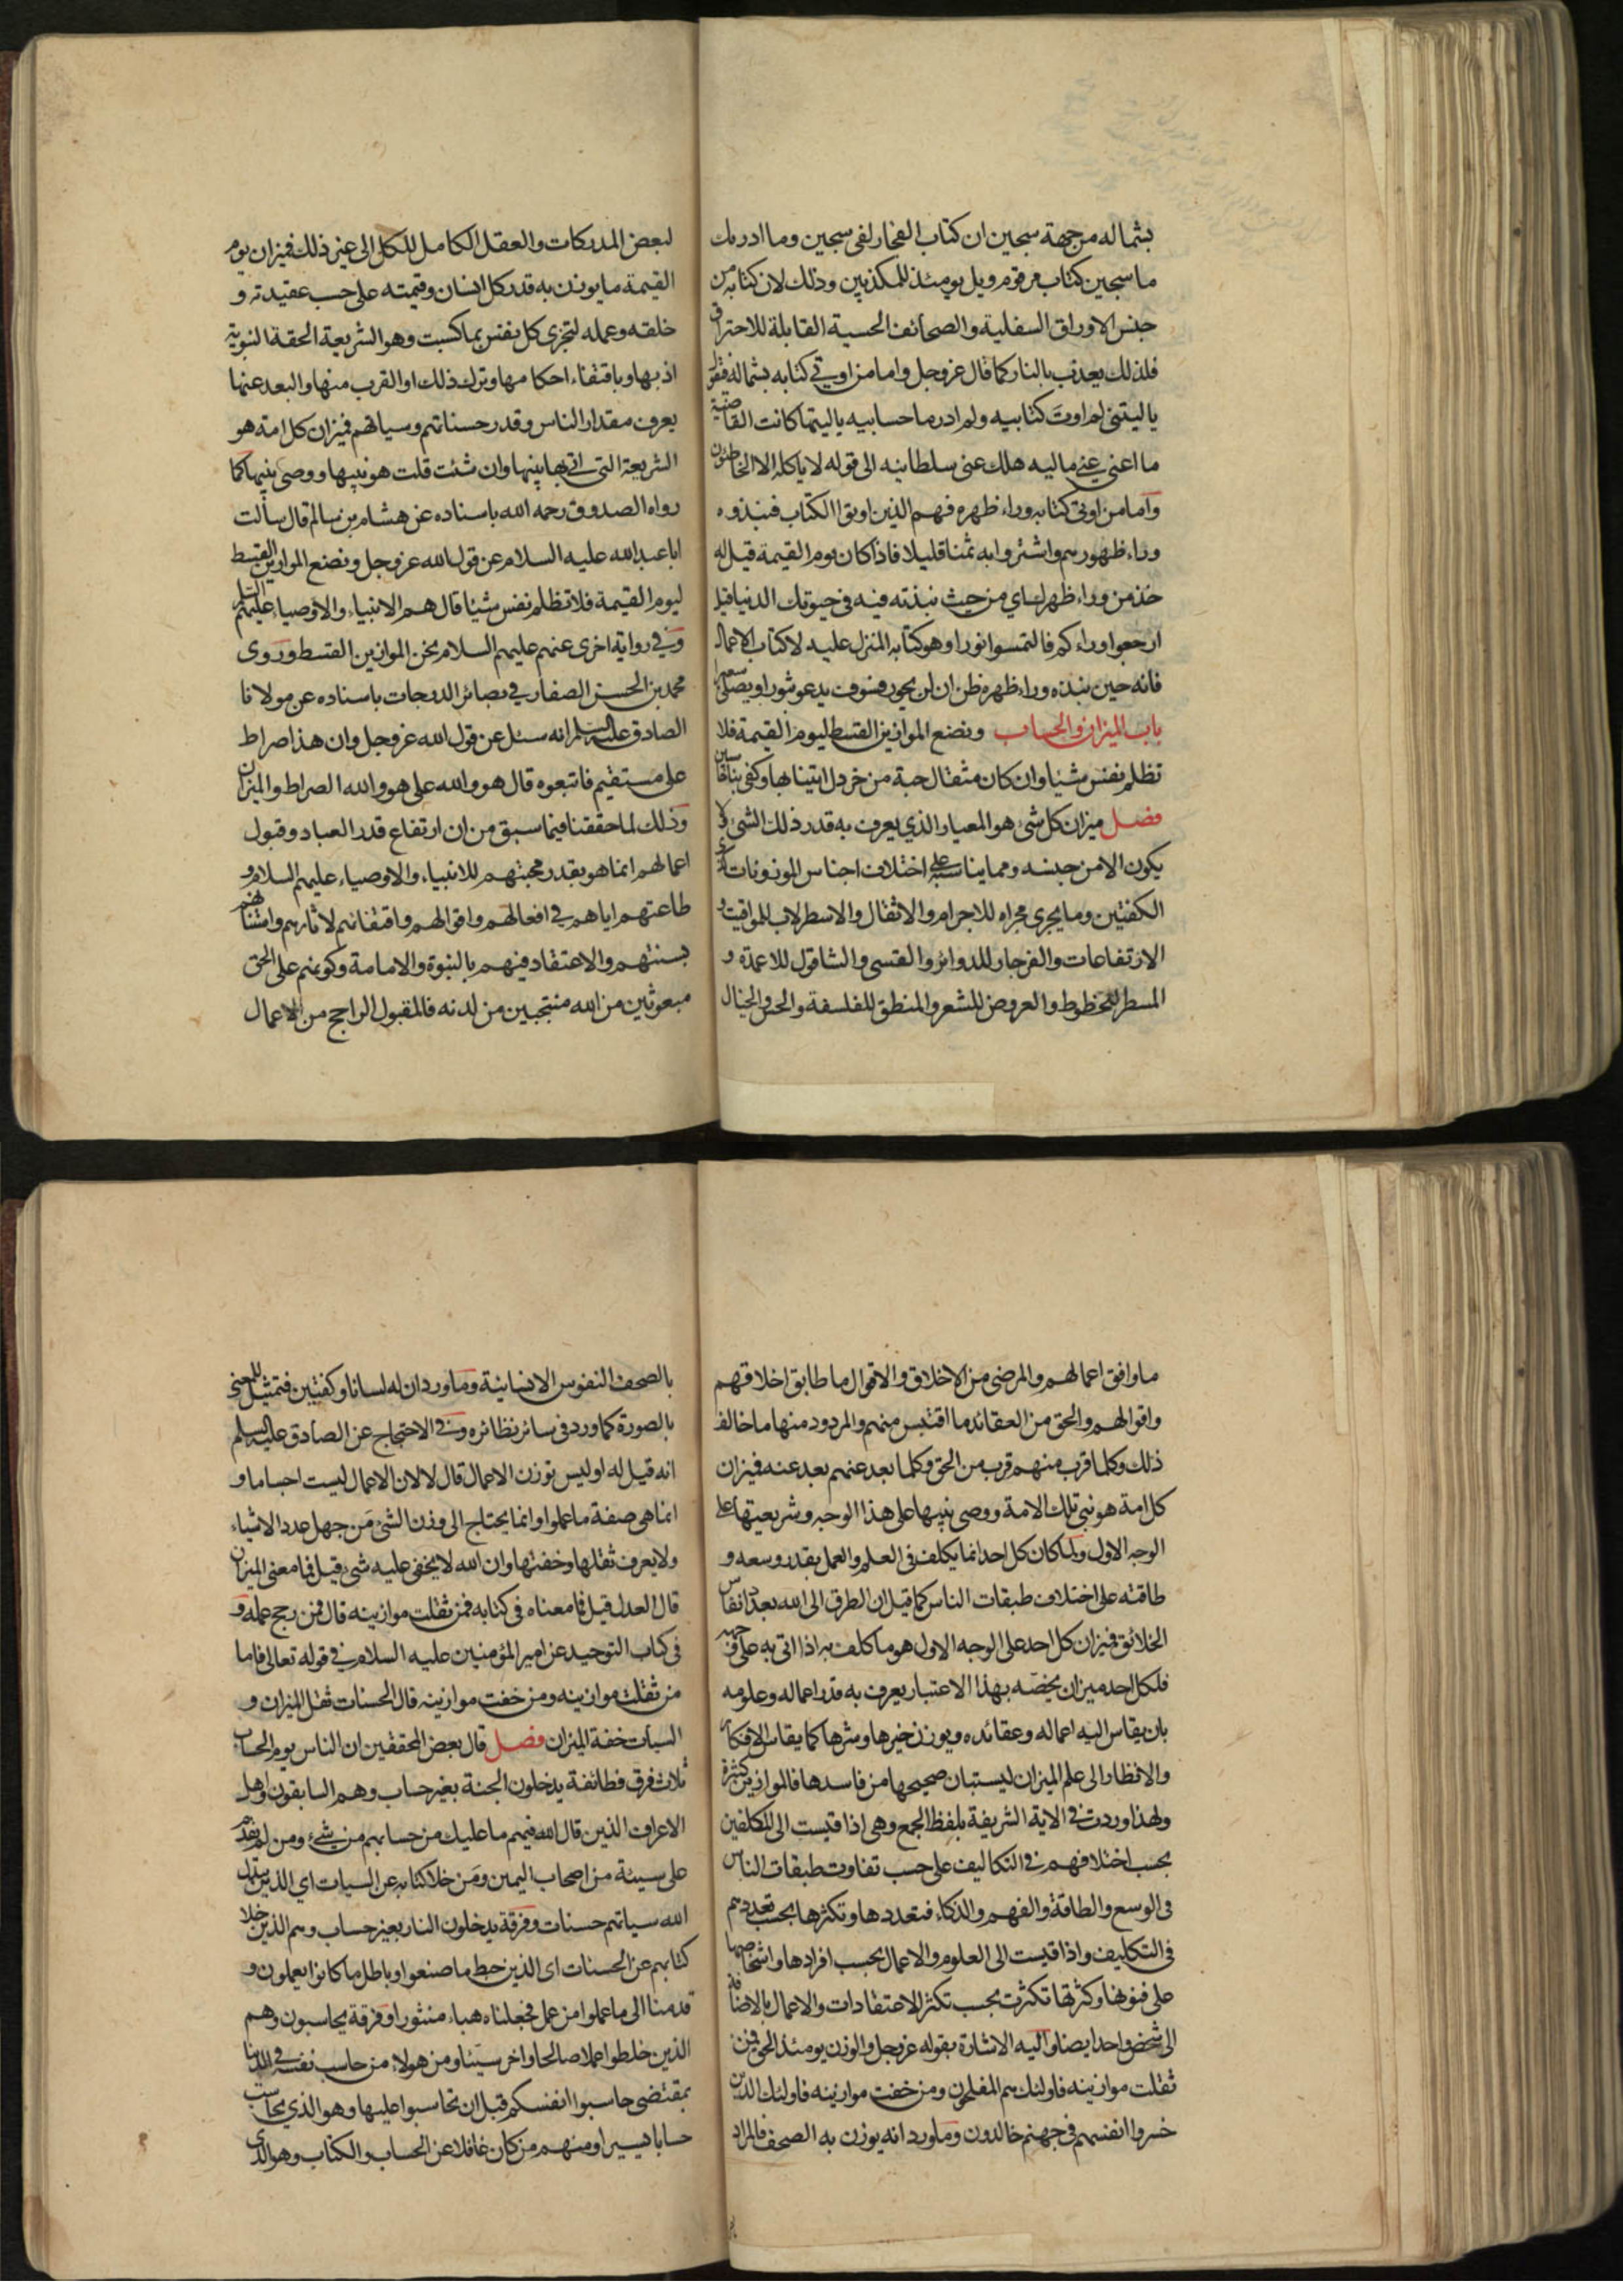 بشماله من جهة سجين ان كتاب الفجار لفى سجين وما ادريك
ما سجين كتاب مرقوم ويل يومئذ للمكذبين وذلك لان كتابه من
جنس الاوراق السفلية والصحائف الحسية القابلة للاحتراق
فلذلك يعذب بالنار كما قال عز وجل واما من اوتي كتابه بشماله فيقول
يا ليتني لم اوت كتابيه ولم ادر ما حسابيه يا ليتها كانت القاضية
ما اغنى عني ماليه هلك عنى سلطانيه الى قوله لا ياكله الا الخاطئون
واما من اوتى كتابه وراء ظهره فهم الذين اوتوا الكتاب فنبذوه
وراء ظهورهم واشتروا به ثمنا قليلا فاذا كان يوم القيمة قيل له
خذ من وراء ظهرك اي من حيث نبذته فيه في حيوتك الدنيا قيل
ارجعوا وراءكم فالتمسوا نورا وهو كتابه المنزل عليه لا كتاب الاعمال
فانه حين نبذه وراء ظهره ظن ان لن يحور فسوف يدعو ثبورا ويصلى سعيرا
باب الميزان والحساب ونضع الموازين القسط ليوم القيمة فلا
تظلم نفس شيئا وان كان مثقال حبة من خردل اتينا بها وكفى بنا حاسبين
فصل ميزان كل شئ هو المعيار الذي يعرف به قدر ذلك الشئ ولا
يكون الا من جنسه ومما يناسبه على اختلاف اجناس الموزونات كذى
الكفتين وما يجرى مجراه للاجرام والاثقال والاسطرلاب للمواقيت و
الارتفاعات والفرجار للدوائر والقسى والشاقول للاعمدة و
المسطر للخطوط والعروض للشعر والمنطق للفلسفة والحس والخيال
لبعض المدركات والعقل الكامل للكل الى غير ذلك فميزان يوم
القيمة ما يوزن به قدر كل انسان وقيمته على حسب عقيدته و
خلقه وعمله لتجزى كل نفس بما كسبت وهو الشريعة الحقة النبوية
اذ بها وباقتفاء احكامها وترك ذلك او القرب منها والبعد عنها
يعرف مقدار الناس وقدر حسناتهم وسياتهم فميزان كل امة هو
الشريعة التى اتى بها نبيها وان شئت قلت هو نبيها ووصى نبيها كما
رواه الصدوق رحمه الله باسناده عن هشام بن سالم قال سألت
ابا عبد الله عليه السلام عن قول الله عز وجل ونضع الموازين القسط
ليوم القيمة فلا تظلم نفس شيئا قال هم الانبياء والاوصياء عليهم السلم
وفي رواية اخرى عنهم عليهم السلام نحن الموازين القسط وروى
محمد بن الحسن الصفار في بصائر الدرجات باسناده عن مولانا
الصادق عليه السلم انه سئل عن قول الله عز وجل وان هذا صراط
على مستقيم فاتبعوه قال هو والله على هو والله الصراط والميزان
وذلك لما حققنا فيما سبق من ان ارتفاع قدر العباد وقبول
اعمالهم انما هو بقدر محبتهم للانبياء والاوصياء عليهم السلام و
طاعتهم اياهم في افعالهم واقوالهم واقتفائهم لاثارهم واستنانهم
بسنتهم والاعتقاد فيهم بالنبوة والامامة وكونهم على الحق
مبعوثين من الله منتجبين من لدنه فالمقبول الراجح من الاعمال
ما وافق اعمالهم والمرضى من الاخلاق والاقوال ما طابق اخلاقهم
واقوالهم والحق من العقائد ما اقتبس منهم والمردود منها ما خالف
ذلك وكلما قرب منهم قرب من الحق وكلما بعد عنهم بعد عنه فميزان
كل امة هو نبي تلك الامة ووصى نبيها على هذا الوجه وشريعتها على
الوجه الاول ولما كان كل احد انما يكلف في العلم والعمل بقدر وسعه و
طاقته على اختلاف طبقات الناس كما قيل ان الطرق الى الله بعدد انفاس
الخلائق فميزان كل احد على الوجه الاول هو ما كلف به اذا اتى به على وجهه
فلكل احد ميزان يخصه بهذا الاعتبار يعرف به قدر اعماله وعلومه
بان يقاس اليه اعماله وعقائده ويوزن خيرها وشرها كما يقاس الافكار
والانظار الى علم الميزان ليستبان صحيحها من فاسدها فالموازين كثيرة
ولهذا وردت في الاية الشريفة بلفظ الجمع وهى اذا قيست الى المكلفين
بحسب اختلافهم في التكاليف على حسب تفاوت طبقات الناس
فى الوسع والطاقة والفهم والذكاء فتعددها وتكثرها بحسب تعددهم
فى التكليف واذا قيست الى العلوم والاعمال بحسب افرادها واشخاصها
على فنونها وكثرتها تكثرت بحسب تكثر الاعتقادات والاعمال بالاضافة
الى شخص واحد ايضا واليه الاشارة بقوله عز وجل والوزن يومئذ الحق فمن
ثقلت موازينه فاولئك هم المفلحون ومن خفت موازينه فاولئك الذين
خسروا انفسهم في جهنم خالدون وما ورد انه يوزن به الصحف فالمراد
بالصحف النفوس الانسانية وما ورد ان له لسانا وكفتين فتمثيل للمعنى
بالصورة كما ورد في سائر نظائره وفي الاحتجاج عن الصادق عليه السلم
انه قيل له او ليس توزن الاعمال قال لا لان الاعمال ليست اجساما و
انما هى صفة ما عملوا وانما يحتاج الى وزن الشئ من جهل عدد الاشياء
ولا يعرف ثقلها وخفتها وان الله لا يخفى عليه شئ قيل فما معنى الميزان
قال العدل قيل فما معناه في كتابه فمن ثقلت موازينه قال فمن رجح عمله و
في كتاب التوحيد عن امير المؤمنين عليه السلام في قوله تعالى فاما
من ثقلت موازينه ومن خفت موازينه قال الحسنات ثقل الميزان و
السيات خفة الميزان فصل قال بعض المحققين ان الناس يوم الحساب
ثلاث فرق فطائفة يدخلون الجنة بغير حساب وهم السابقون واهل
الاعراف الذين قال الله فيهم ما عليك من حسابهم من شئ ومن لم يقدم
على سيئة من اصحاب اليمين ومن خلا كتابه عن السيات اي الذين يبدل
الله سياتهم حسنات وفرقة يدخلون النار بغير حساب وهم الذين خلا
كتابهم عن الحسنات اى الذين حبط ما صنعوا وباطل ما كانوا يعملون و
قدمنا الى ما عملوا من عمل فجعلناه هباء منثورا وفرقة يحاسبون وهم
الذين خلطوا عملا صالحا واخر سيئا ومن هولاء من حاسب نفسه في الدنيا
بمقتضى حاسبوا انفسكم قبل ان تحاسبوا عليها وهو الذي يحاسب
حسابا يسيرا ومنهم من كان غافلا عن الحساب والكتاب وهو الذى